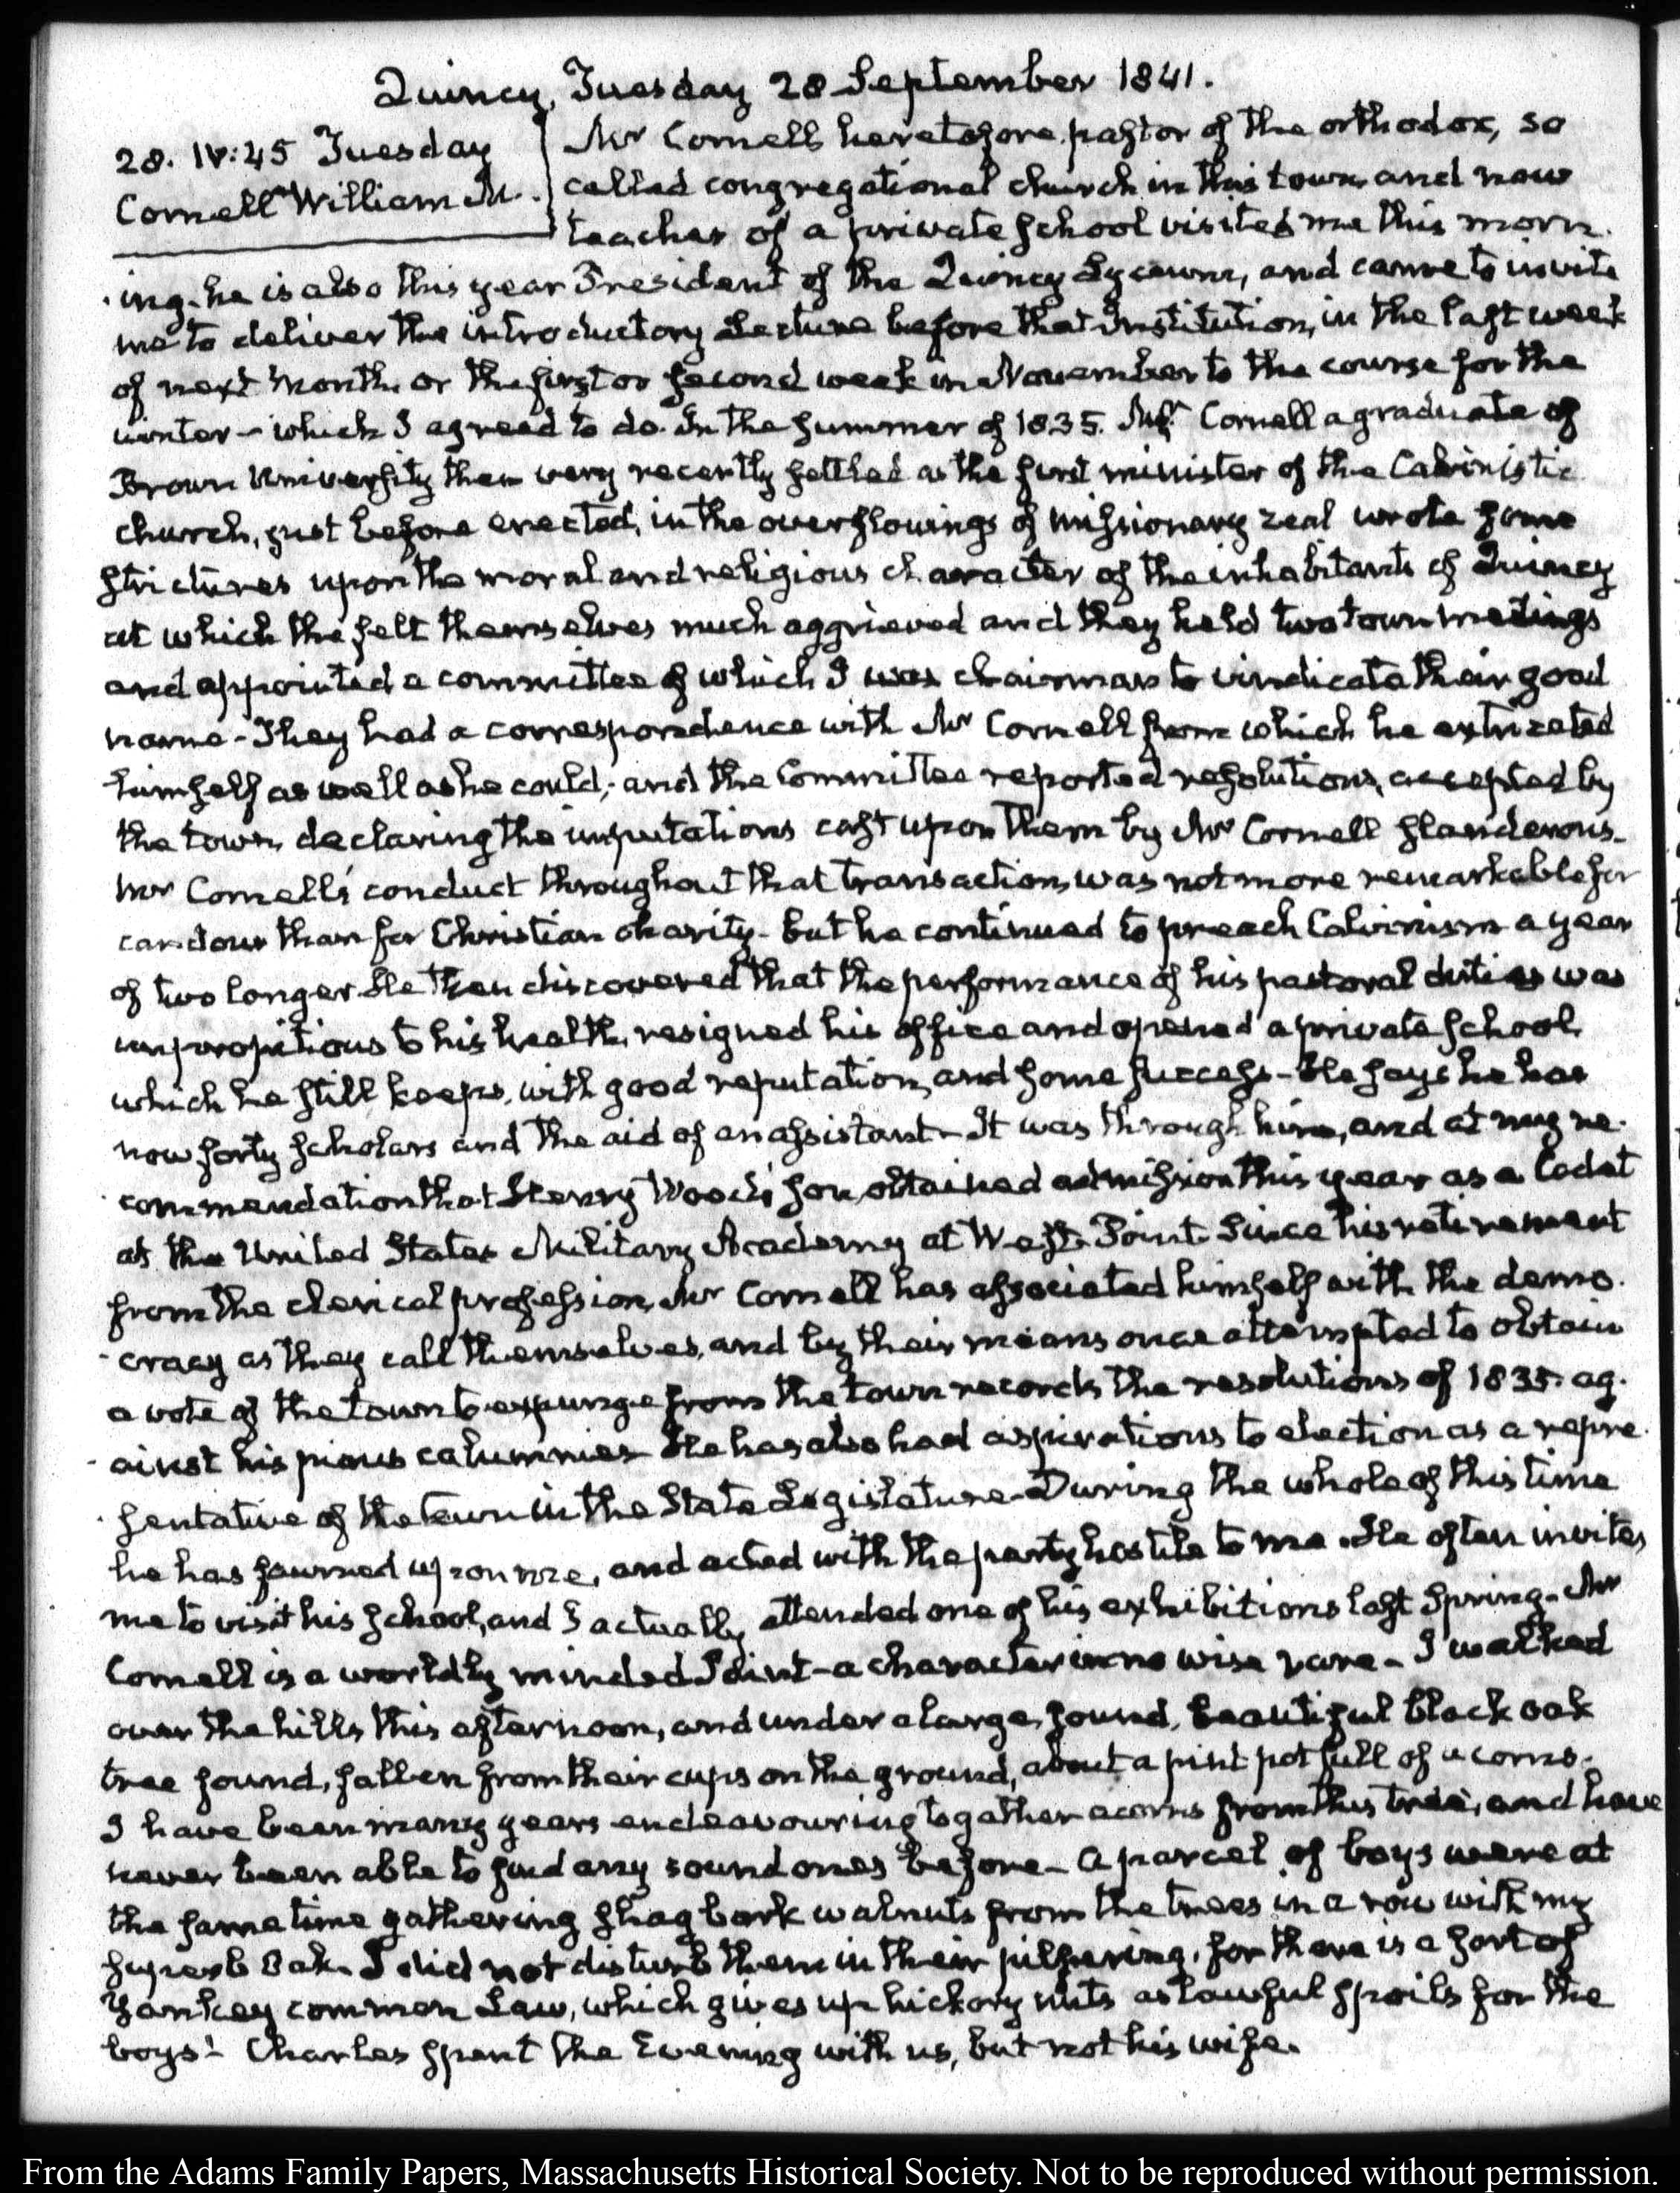 Quincy, Tuesday 28 September 1841.
28. IV:45 Tuesday
Cornell William M.
Mr Cornell heretofore pastor of the orthodox, so
called congregational church in this town and now
teacher of a private school visited me this morn-
ing. he is also this year President of the Quincy Lyceum, and came to invite
me to deliver the introductory Lecture before that Institution, in the last week
of next month or the first or second week in November to the course for the
winter – which I agreed to do. In the summer of 1835. Mr Cornell a graduate of
Brown University then very recently settled as the first minister of the Calvinistic
church, just before erected, in the overflowings of missionary zeal wrote some
strictures upon the moral and religious character of the inhabitants of Quincy
at which the felt themselves much aggrieved and they held two town meetings
and appointed a committee of which I was chairman to vindicate their good
name – They had a correspondence with Mr Cornell from which he extricated
himself as well as he could; and the Committee reported resolutions, accepted by
the town, declaring the imputations cast upon them by Mr Cornell slanderous.
Mr Cornell's conduct throughout that transaction, was not more remarkable for
candour than for Christian charity – but he continued to preach Calvinism a year
of two longer He then discovered that the performance of his pastoral duties was
unpropitious to his health, resigned his office and opened a private school,
which he still keeps, with good reputation, and some success – He says he has
now forty scholars and the aid of an assistant – It was through him, and at my re-
commendation that Henry Wood's son, obtained admission this year as a Cadet
at the United States Military Academy at West-Point. Since his retirement
from the clerical profession, Mr Cornell has associated himself with the demo-
cracy as they call themselves, and by their means once attempted to obtain
a vote of the town to expunge from the town records the resolutions of 1835. ag-
ainst his pious calumnies He has also had aspirations to election as a repre-
sentative of the town in the State Legislature – During the whole of this time
he has fawned upon me, and acted with the party hostile to me. He often invites
me to visit his school, and I actually attended one of his exhibitions last Spring – Mr
Cornell is a worldly minded Saint – a character in no wise rare – I walked
over the hills this afternoon, and under a large, sound, beautiful black oak
tree found, fallen from their cups on the ground, about a pint pot full of acorns.
I have been many years endeavouring to gather acorns from this tree, and have
never been able to find any sound ones before – a parcel of boys were at
the same time gathering shagbark walnuts from the trees in a row with my
superb Oak. I did not disturb them in their pilfering, for there is a sort of
Yankey common Law, which gives up hickory nuts as lawful spoils for the
boys – Charles spent the Evening with us, but not his wife.
From the Adams Family Papers, Massachusetts Historical Society. Not to be reproduced without permission.